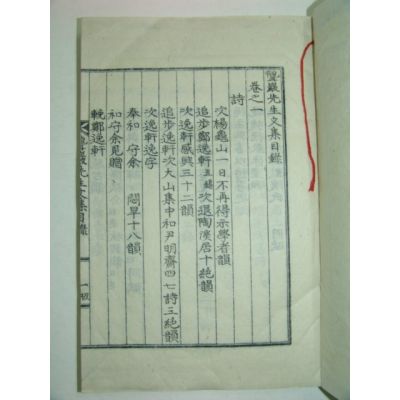 巖先生文集目錄
卷之一
詩
次楊龜山一日不再得示學者韻
追步鄭逸軒 次退陶溪居十絶韻
次逸軒感興三十二韻
追步逸軒次大山集中和尹明齋四七詩三絶韻
次逸軒逸字
奉和守余 悶旱十八韻
和守余見贈
輓鄭逸軒
巖先生文集目錄
一